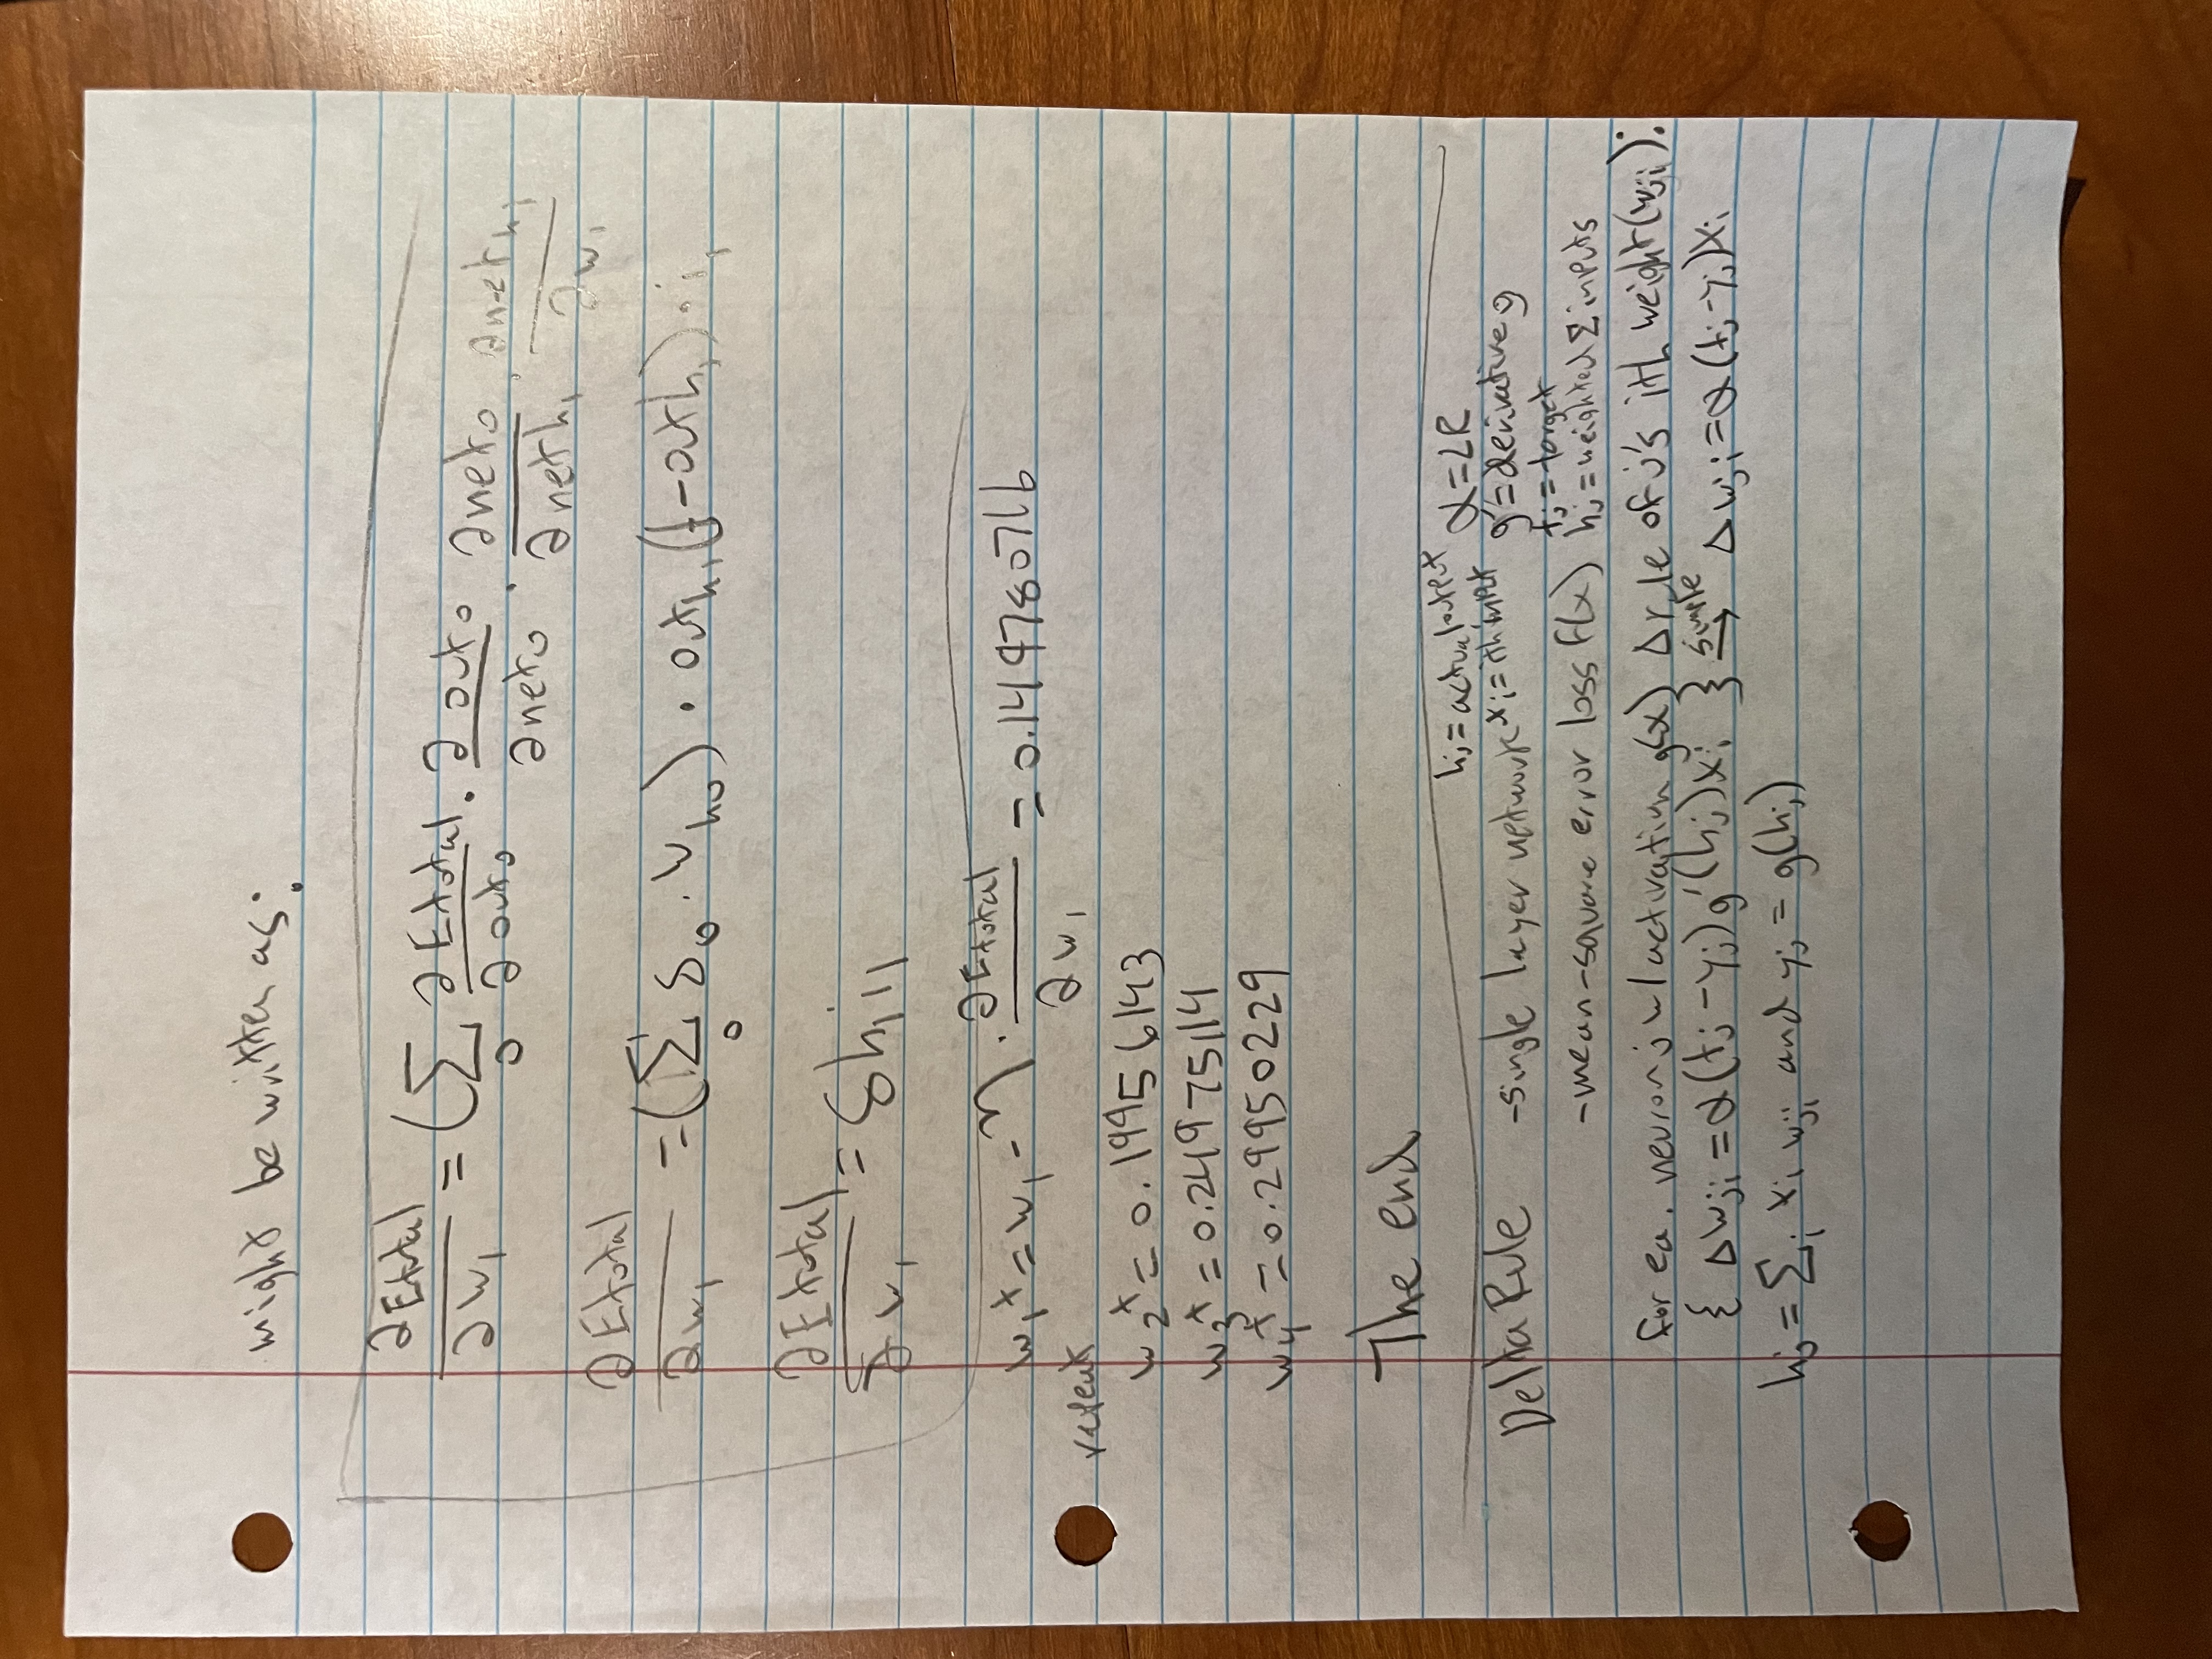 might be written as:
∂Etotal/∂w₁ = (∑o ∂Etotal/∂outo · ∂outo/∂neto · ∂neto/∂neth₁ · ∂neth₁/∂w₁
∂Etotal/∂w₁ = (∑o δo · who) · outh₁(1-outh₁) · i₁
∂Etotal/∂w₁ = δh₁i₁
w₁⁺ = w₁ - η · ∂Etotal/∂w₁ = 0.149780716
repeat
w₂⁺ = 0.19956143
w₃⁺ = 0.24975114
w₄⁺ = 0.29950229
The end
hj = actual output α = LR
Delta Rule -single layer network xi = ith input g' = derivative g
tj = target
-mean-square error loss f(x) hj = weighted Σ inputs
for ea. neuron j w/ activation g(x) Δ rule of j's ith weight (wji):
{ Δwji = α(tj - yj)g'(hj)xi } simple → Δwji = α(tj-yj)xi
hj = ∑i xi wji and yj = g(hj)